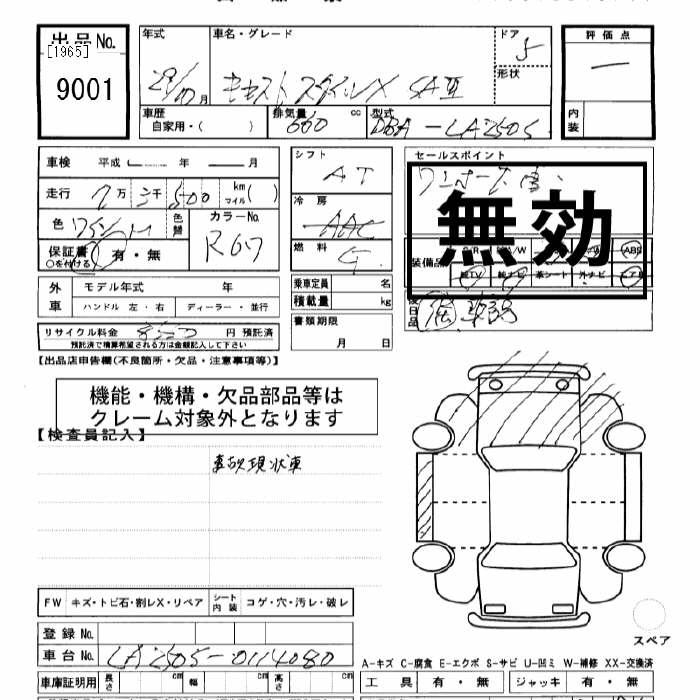 出品No.
[1965]
9001
年式
29/10月
車名・グレード
キャスト スタイルX SAⅢ
ドア
5
形状
評価点
内装
車歴
自家用・( )
排気量 cc
660
型式
DBA-LA250S
車検 平成 年 月
走行 万 千 500 km マイル( )
色
色替
カラーNo.
R67
保証書
○を付ける
有・無
シフト
AT
冷房
AAC
燃料
G
乗車定員 名
積載量 kg
書類期限
月 日
セールスポイント
無効
装備品
ABS
後日品
外車
モデル年式 年
ハンドル 左・右
ディーラー・並行
リサイクル料金 円 預託済
預託済で精算希望される方は金額記入して下さい
【出品店申告欄(不良箇所・欠品・注意事項等)】
機能・機構・欠品部品等は
クレーム対象外となります
【検査員記入】
事故現状車
FW キズ・トビ石・割レX・リペア
シート内装
コゲ・穴・汚レ・破レ
登録No.
車台No.
LA250S-0114080
スペア
A-キズ C-腐食 E-エクボ S-サビ U-凹ミ W-補修 XX-交換済
車庫証明用 長さ cm 幅 cm 高さ cm
工具 有・無 ジャッキ 有・無